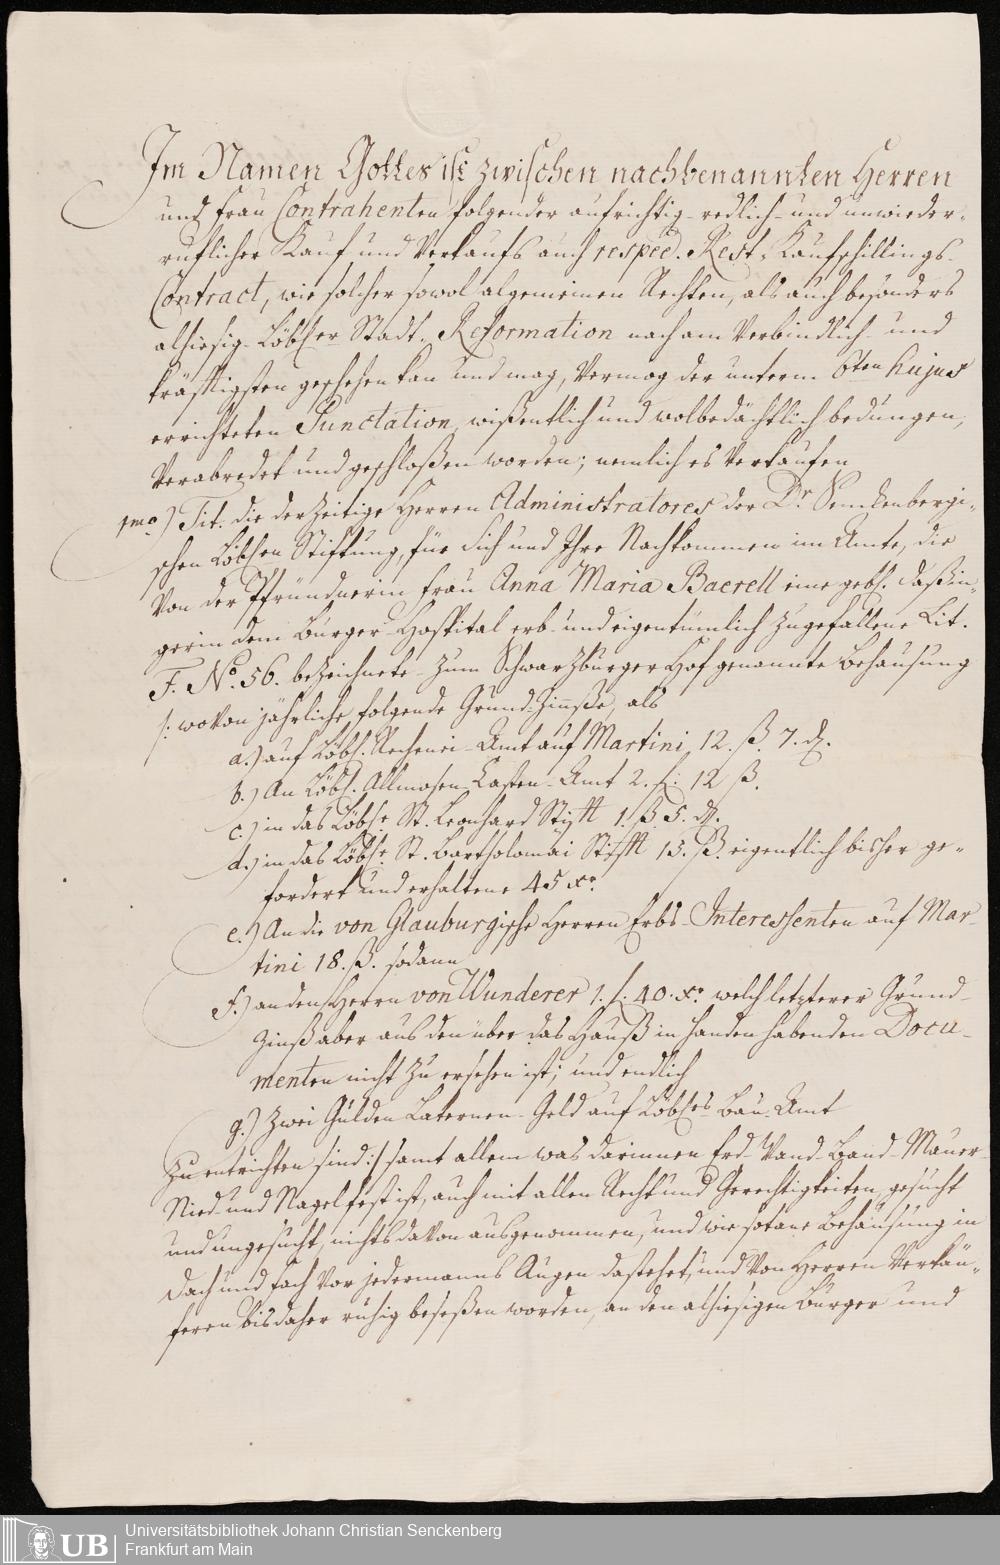 Im Namen Gottes ist zwischen nachbenannten Herren
und Frau Contrahenten folgender aufrichtig- redlich- und unwieder-
ruflicher Kauf und Verkaufs auch respec. Rest-Kaufschillings-
Contract, wie solcher sowol algemeinen Rechten, als auch besonders
alhiesig-Löbl.er Stadt-Reformation nach am Verbindlich- und
kräfftigsten geschehen kan und mag, Vermog der unterm 6ten hujus
errichteten Punctation, wißentlich und wolbedächtlich bedungen,
Verabredet und geschloßen worden; nemlich es Verkaufen
1mo.) Tit. die derzeitige Herren Administratores der Dr. Senckenbergi-
schen Löblen Stiftung, für Sich und Ihre Nachkommen im Amte, die
Von der Pfründnerin Frau Anna Maria Baerell eine gebh. Daßin-
gerin dem Burger-Hospital erb- und eigentümlich zugefallene Lit.
F. No. 56. bezeichnete- zum Schwarzburger Hof genannte Behausung
/: woVon jährliche folgende Grund-Zinnße, als
a.) auf Löbl. Rechenei-Amt auf Martini 12. ß. 7. d.
b.) An Löbl. Allmosen-Casten-Amt 2. f. 12 ß.
c.) in das Löble St. Leonhard Stifft 1. ß. 5. d.
d.) in das Löble. St. Bartholomai Stifft 15. ß. eigentlich bisher ge-
fordert und erhaltene 45 xr.
e.) An die von Glauburgische Herren Erbs-Interessenten auf Mar-
tini 18. ß. sodann
f.) an den Herrn von Wunderer 1. f. 40. xr. welch letzterer Grund-
Zinß aber aus den über das Hauß in Handen habenden Docu-
menten nicht zu ersehen ist; und endlich
g.) Zwei Gulden Laternen-Geld auf Löbles Bau-Amt
Zu entrichten sind :/ samt allem was darinnen Erd- Wand- Band- Mauer-
Nied- und Nagelfest ist, auch mit allen Recht und Gerechtigkeiten, gesucht
und ungesucht, nichts daVon ausgenommen, und wie sotane Behausung in
Dach und Fach Vor jedermanns Augen dastehet, und Von Herren Verkäu-
feren bisdaher ruhig beseßen worden, an den alhiesigen Burger und
UB
Universitätsbibliothek Johann Christian Senckenberg
Frankfurt am Main